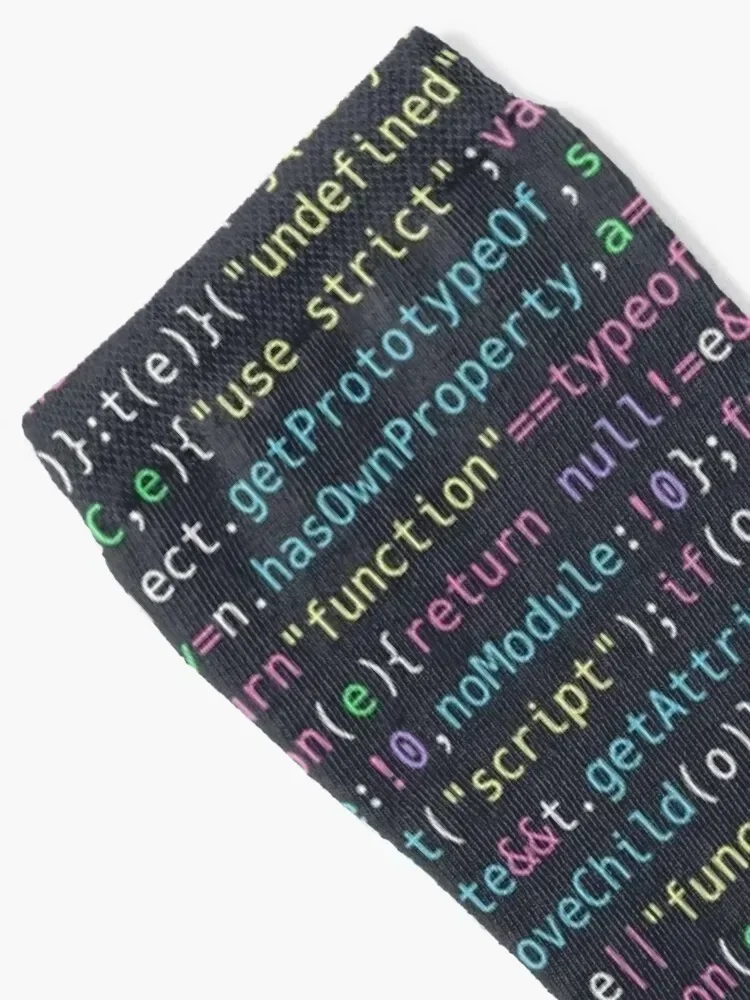 )}:t(e)}("undefined"
C,e){"use strict";va
ect.getPrototypeOf,s
=n.hasOwnProperty,a=
urn"function"==typeof
on(e){return null!=e&
:!0,noModule:!0};f
t("script");if(o
te&&t.getAttri
oveChild(o)
e||"func
on(